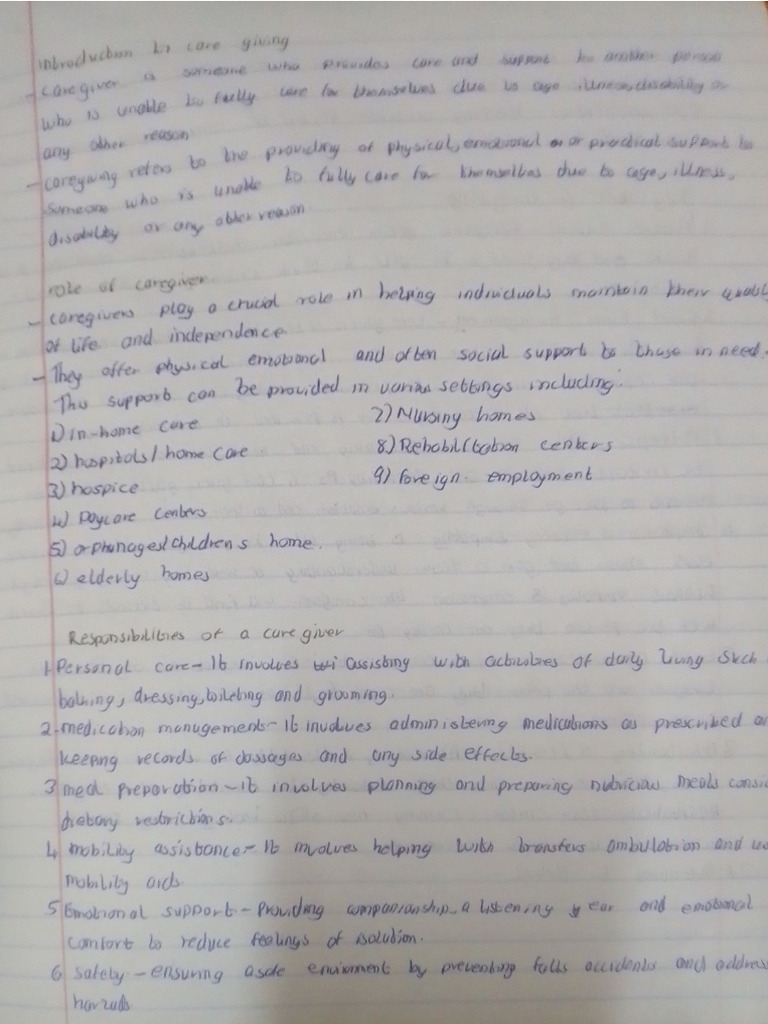 introduction to care giving
- caregiver is someone who provides care and support to another person
who is unable to fully care for themselves due to age illness, disability or
any other reason
- caregiving refers to the providing of physical, emotional or practical support to
someone who is unable to fully care for themselves due to age, illness,
disability or any other reason
role of caregiver
- caregivers play a crucial role in helping individuals maintain their quality
of life and independence
- They offer physical emotional and often social support to those in need.
This support can be provided in various settings including:
1) in-home care
2) hospitals / home care
3) hospice
4) Daycare centers
5) orphanages/childrens home.
6) elderly homes
7) Nursing homes
8) Rehabilitation centers
9) foreign employment
Responsibilities of a care giver
1. Personal care - It involves assisting with activities of daily living such
bathing, dressing, toileting and grooming.
2. medication management - It involves administering medications as prescribed
keeping records of dossages and any side effects.
3 meal preparation - it involves planning and preparing nutricious meals
dietary restrictions.
4 mobility assistance - It involves helping with transfers ambulation and
mobility aids
5 Emotional support - Providing companionship, a listening ear and emotional
comfort to reduce feelings of isolation.
6 safety - ensuring a safe enviroment by preventing falls accidents and address
harzads